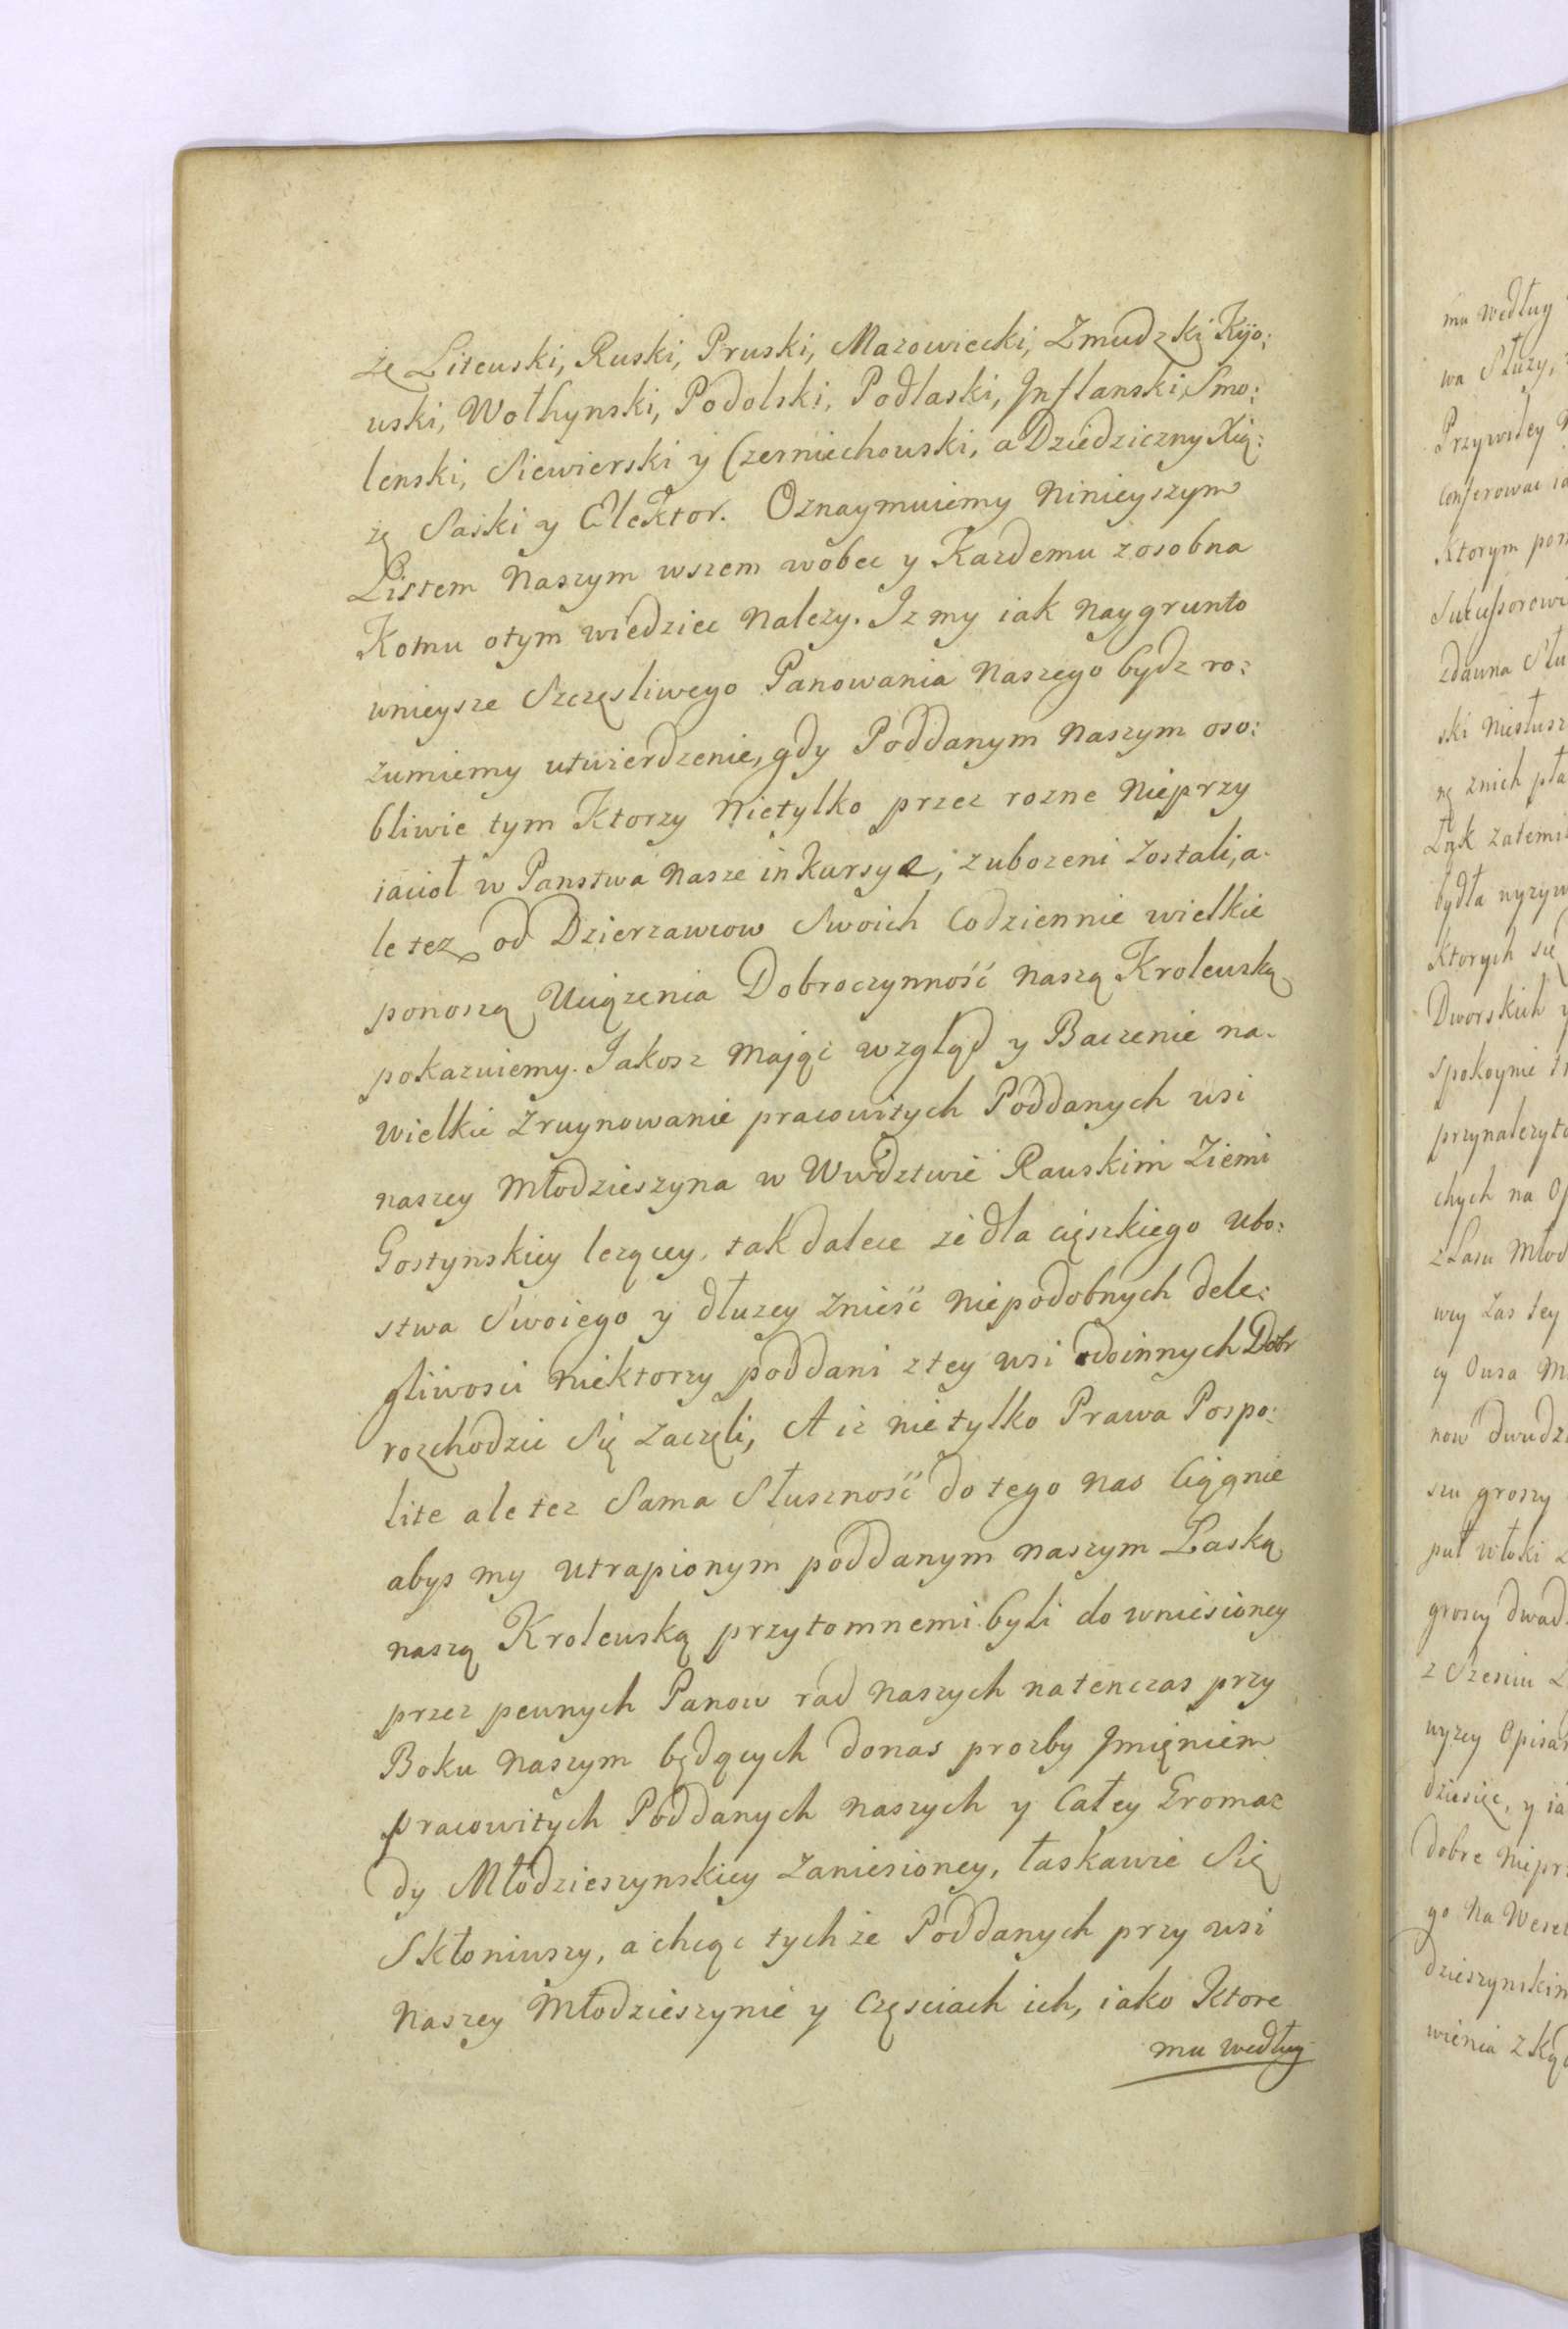 żę Litewski, Ruski, Pruski, Mazowiecki, Zmudzki Kijo:
wski, Wołhynski, Podolski, Podlaski, Jnflanski, Smo:
lenski, Siewierski y Czerniechowski, a Dziedziczny Xią:
żę Saski y Elektor. Oznaymuiemy Ninieyszym
Listem Naszym wszem wobec y Kazdemu zosobna
Komu otym wiedziec Nalezy. Iz my iak Naygrunto
wnieysze Szczęsliwego Panowania Naszego bydz ro:
zumiemy utwierdzenie, gdy Poddanym Naszym oso:
bliwie tym Ktorzy Nietylko przez rozne Nieprzy
iacioł w Panstwa Nasze inkursye, zubozeni zostali, a-
le tez od Dzierzawcow Swoich Codziennie wielkie
ponoszą Uciązenia Dobroczynność Naszą Krolewską
pokazuiemy. Jakosz Mając wzgląd y Baczenie na-
wielkie zruynowanie pracowitych Poddanych wsi
naszey Młodzieszyna w Wwdztwie Rauskim Ziemi
Gostynskiey lezącey, tak dalece ze dla cięszkiego Ubo:
stwa Swoiego y dłuzey Znieść Niepodobnych dele:
gliwosci Niektorzy poddani ztey wsi doinnych Dobr
rozchodzic Się Zaczęli, A iz nie tylko Prawa Pospo:
lite ale tez Sama Słuszność do tego Nas Ciągnie
abys my Utrapionym poddanym Naszym Łaską
naszą Krolewską przytomnemi byli do wniesioney
przez pewnych Panow rad Naszych natenczas przy
Boku Naszym będących donas prozby Jmięniem
pracowitych Poddanych naszych y Całey Gromaz
dy Młodzieszynskiey Zaniesioney, łaskawie Się
Skłoniwszy, a chcąc tychze Poddanych przy wsi
Naszey Młodzieszynie y Częsciach ich, iako Ktore
mu według
mu według
wa Słuzy,
Przywiley
Conferowac
Ktorym
Sukcessorow
zdawna
ski
nę znich
Łąk
bydła
Ktorych się
Dworskich y
spokoynie
przynalezyto
chych na
z Lasu Młod
wey Zas tey
cy Owsa
now dwudz
szu groszy
puł włoki
groszy dwad
z
wyzey Opisan
dziesięc, y
dobre
go Na
dzieszynskim
wienia